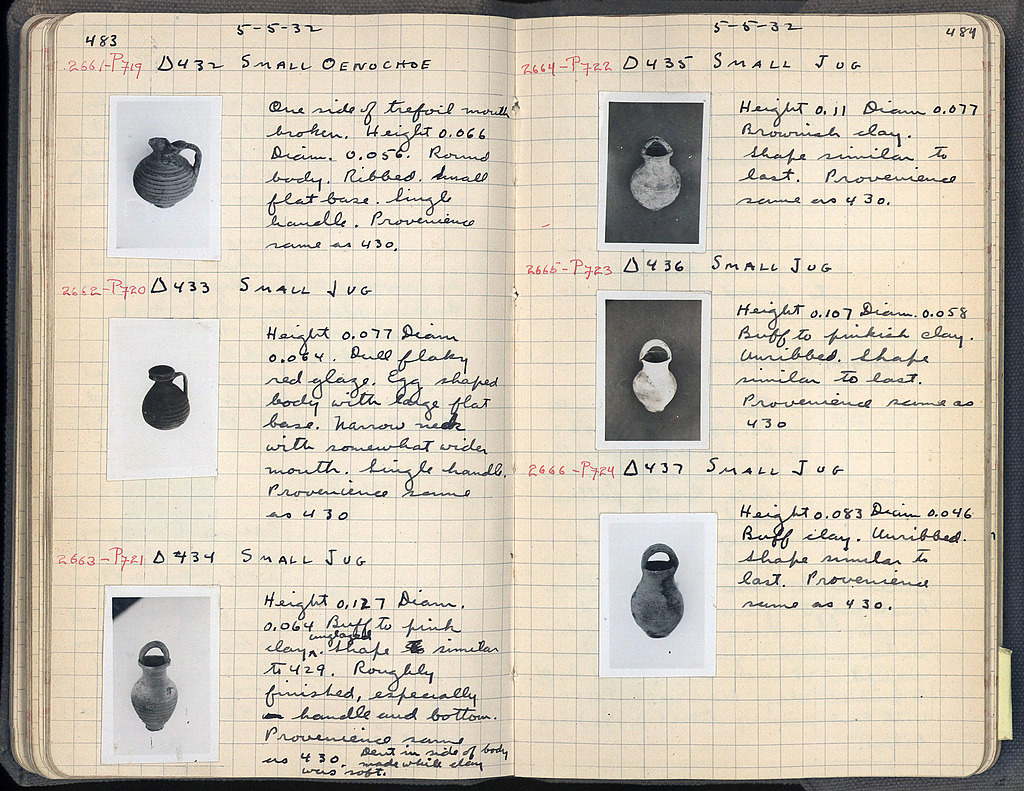 483
5-5-32
2661-P719 Δ432 SMALL OENOCHOE
One side of trefoil mouth
broken. Height 0.066
Diam. 0.056. Round
body. Ribbed. Small
flat base. Single
handle. Provenience
same as 430.
2662-P720 Δ433 SMALL JUG
Height 0.077 Diam
0.064. Dull flaky
red glaze. Egg shaped
body with large flat
base. Narrow neck
with somewhat wider
mouth. Single handle.
Provenience same
as 430
2663-P721 Δ434 SMALL JUG
Height 0.127 Diam.
0.064 Buff to pink
unglazed
clay. Shape similar
to 429. Roughly
finished, especially
handle and bottom.
Provenience same
as 430. Dent in side of body
made while clay
was soft.
5-5-32
484
2664-P722 Δ435 SMALL JUG
Height 0.11 Diam 0.077
Brownish clay.
Shape similar to
last. Provenience
same as 430.
2665-P723 Δ436 SMALL JUG
Height 0.107 Diam. 0.058
Buff to pinkish clay.
Unribbed. Shape
similar to last.
Provenience same as
430
2666-P724 Δ437 SMALL JUG
Height 0.083 Diam 0.046
Buff clay. Unribbed.
Shape similar to
last. Provenience
same as 430.